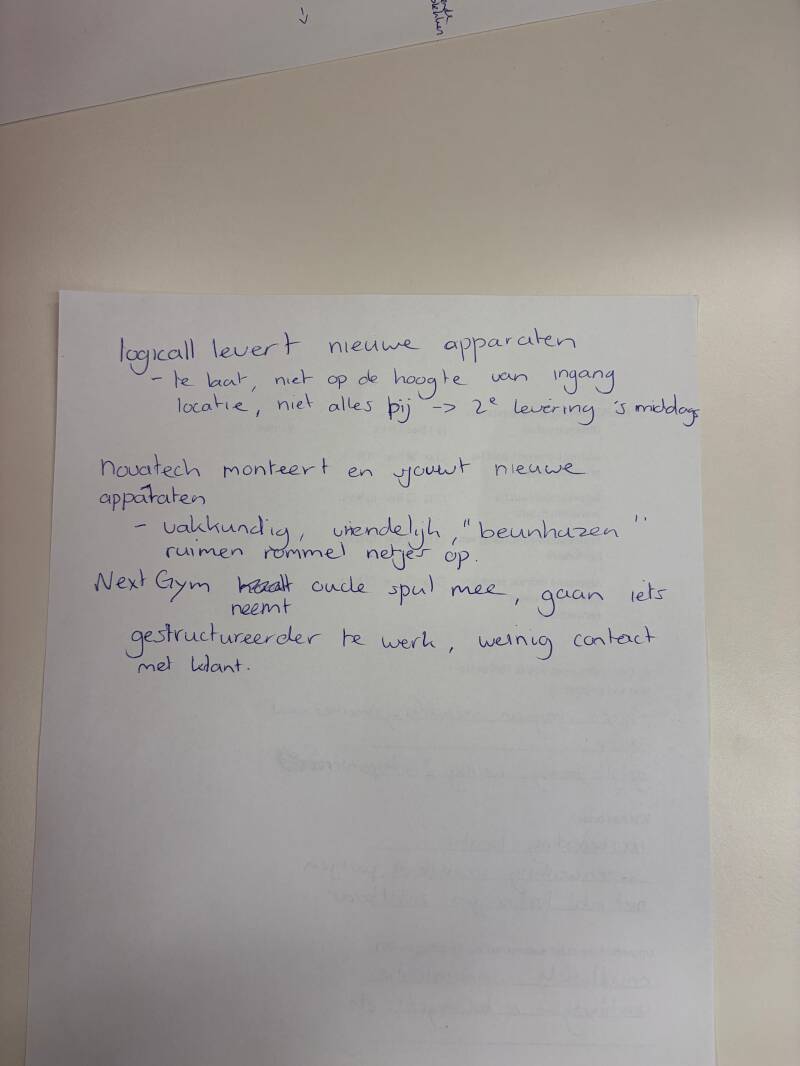 logicall levert nieuwe apparaten
- te laat, niet op de hoogte van ingang
locatie, niet alles bij -> 2e levering 's middags
Novatech monteert en sjouwt nieuwe
apparaten
- vakkundig, vriendelijk, "beunhazen"
ruimen rommel netjes op.
Next Gym oude spul mee, gaan iets
neemt
gestructureerder te werk, weinig contact
met klant.